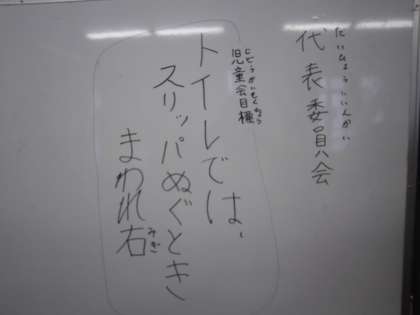 だいひょういいんかい
代表委員会
じどうかいもくひょう
児童会目標
トイレでは、
スリッパぬぐとき
まわれ右
みぎ